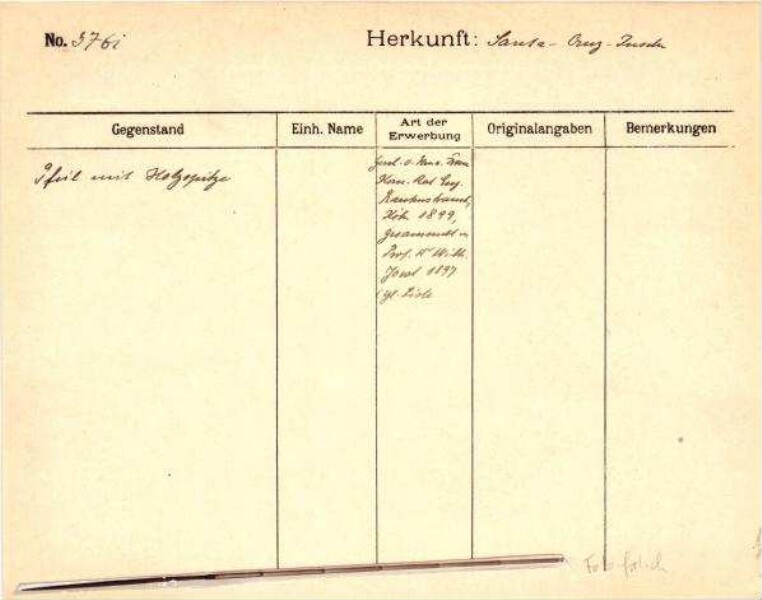 No. 376i
Herkunft: Santa-Cruz-Inseln
Gegenstand
Einh. Name
Art der
Erwerbung
Originalangaben
Bemerkungen
Pfeil mit Holzspitze
Gesch. v. Frau
Kom. Rat Eug.
Rautenstrauch,
Köln 1899,
gesammelt v.
Prof. Dr Wilh.
Joest 1897
(gl. Liste
Foto falsch